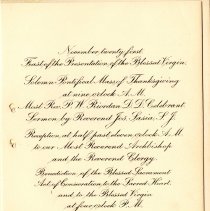 November twenty first
Feast of the Presentation of the Blessed Virgin.
Solemn Pontifical Mass of Thanksgiving
at nine o'clock A.M.
Most Rev. P. W. Riordan D.D. Celebrant.
Sermon by Reverend Jos. Sasia, S.J.
Reception at half past eleven o'clock A.M.
to our Most Reverend Archbishop
and the Reverend Clergy.
Benediction of the Blessed Sacrament
Act of Consecration to the Sacred Heart,
and to the Blessed Virgin
at four o'clock P.M.